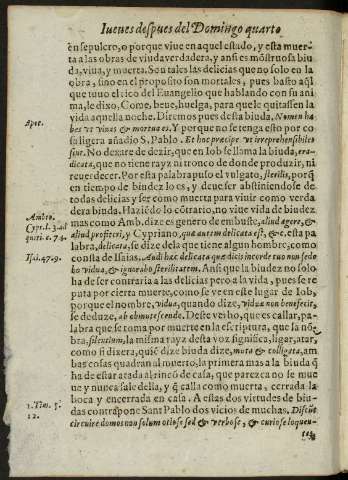 Iueues despues del Domingo quarto
en sepulcro, o porque viue en aquel estado, y esta muer-
ta a las obras de viuda verdadera, y ansi es mõstruosa biu
da, viua, y muerta. Son tales las delicias que no solo en la
obra, sino en el proposito son mortales, pues basto aq̃l
que tuuo el rico del Euangelio que hablando con su ani
ma, le dixo, Come, beue, huelga, para que le quitassen la
vida aquella noche. Diremos pues desta biuda, Nomen ha
Apoc.
bes vt viuas & mortua es. Y porque no se tenga esto por co
sa ligera añadio S. Pablo. Et hoc præcipe vt irreprehensibiles
sint. No dexare de dezir, que en Iob se llama la biuda, era-
dicata, que no tiene rayz ni tronco de donde produzir, ni
reuerdecer. Por esta palabra puso el vulgato, sterilis, porq̃
en tiempo de biudez lo es, y deue ser abstiniendose de
todas delicias y ser como muerta para viuir como verda
dera biuda. Haziẽdo lo cõtrario, no viue vida de biudez
Ambro.
mas como Amb. dize es genero de embuste, aliud agere, &
Cypr. l. 3. ad
aliud profiteri, y Cypriano, quæ autem delicata est, &c. esta pa
quiri. c. 74.
labra, delicata, se dize de la que tiene algun hombre, como
Isai. 47. 9.
consta de Isaias. Audi hæc delicata quæ dicis in corde tuo non sede
bo vidua, & ignorabo sterilitatem. Ansi que la biudez no solo
ha de ser contraria a las delicias pero a la vida, pues se re
puta por cierta muerte, como se ve en este lugar de Iob,
porque el nombre, vidua, quando dize, viduæ non benefecit,
se deduze, ab obmutescende. Deste verbo, que es callar, pa-
labra que se toma por muerte en la escriptura, que la nõ-
bra, silentium, la misma rayz desta voz significa, ligar, atar,
como si dixera, quiẽ dize biuda dize, muta & colligata, am
bas cosas quadran al muerto, la primera mas a la biuda q̃
ha de estar atada al rincõ de casa, que parezca no se mue
ue y nunca sale della, y q̃ calla como muerta, cerrada la
boca y encerrada en casa. A estas dos virtudes de biu-
1. Tim. 5.
das contrapone Sant Pablo dos vicios de muchas. Discũt
12.
circuire domos non solum otiosæ sed & verbosæ, & curiosæ loquen-